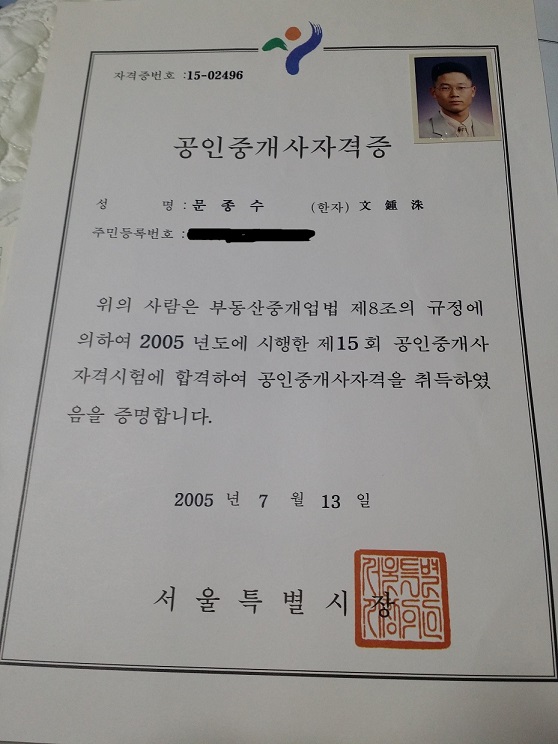 자격증번호 :15-02496
공인중개사자격증
성 명 : 문 종 수 (한자) 文 鍾 洙
주민등록번호 :
위의 사람은 부동산중개업법 제8조의 규정에
의하여 2005 년도에 시행한 제15회 공인중개사
자격시험에 합격하여 공인중개사자격을 취득하였
음을 증명합니다.
2005 년 7 월 13 일
서 울 특 별 시 장